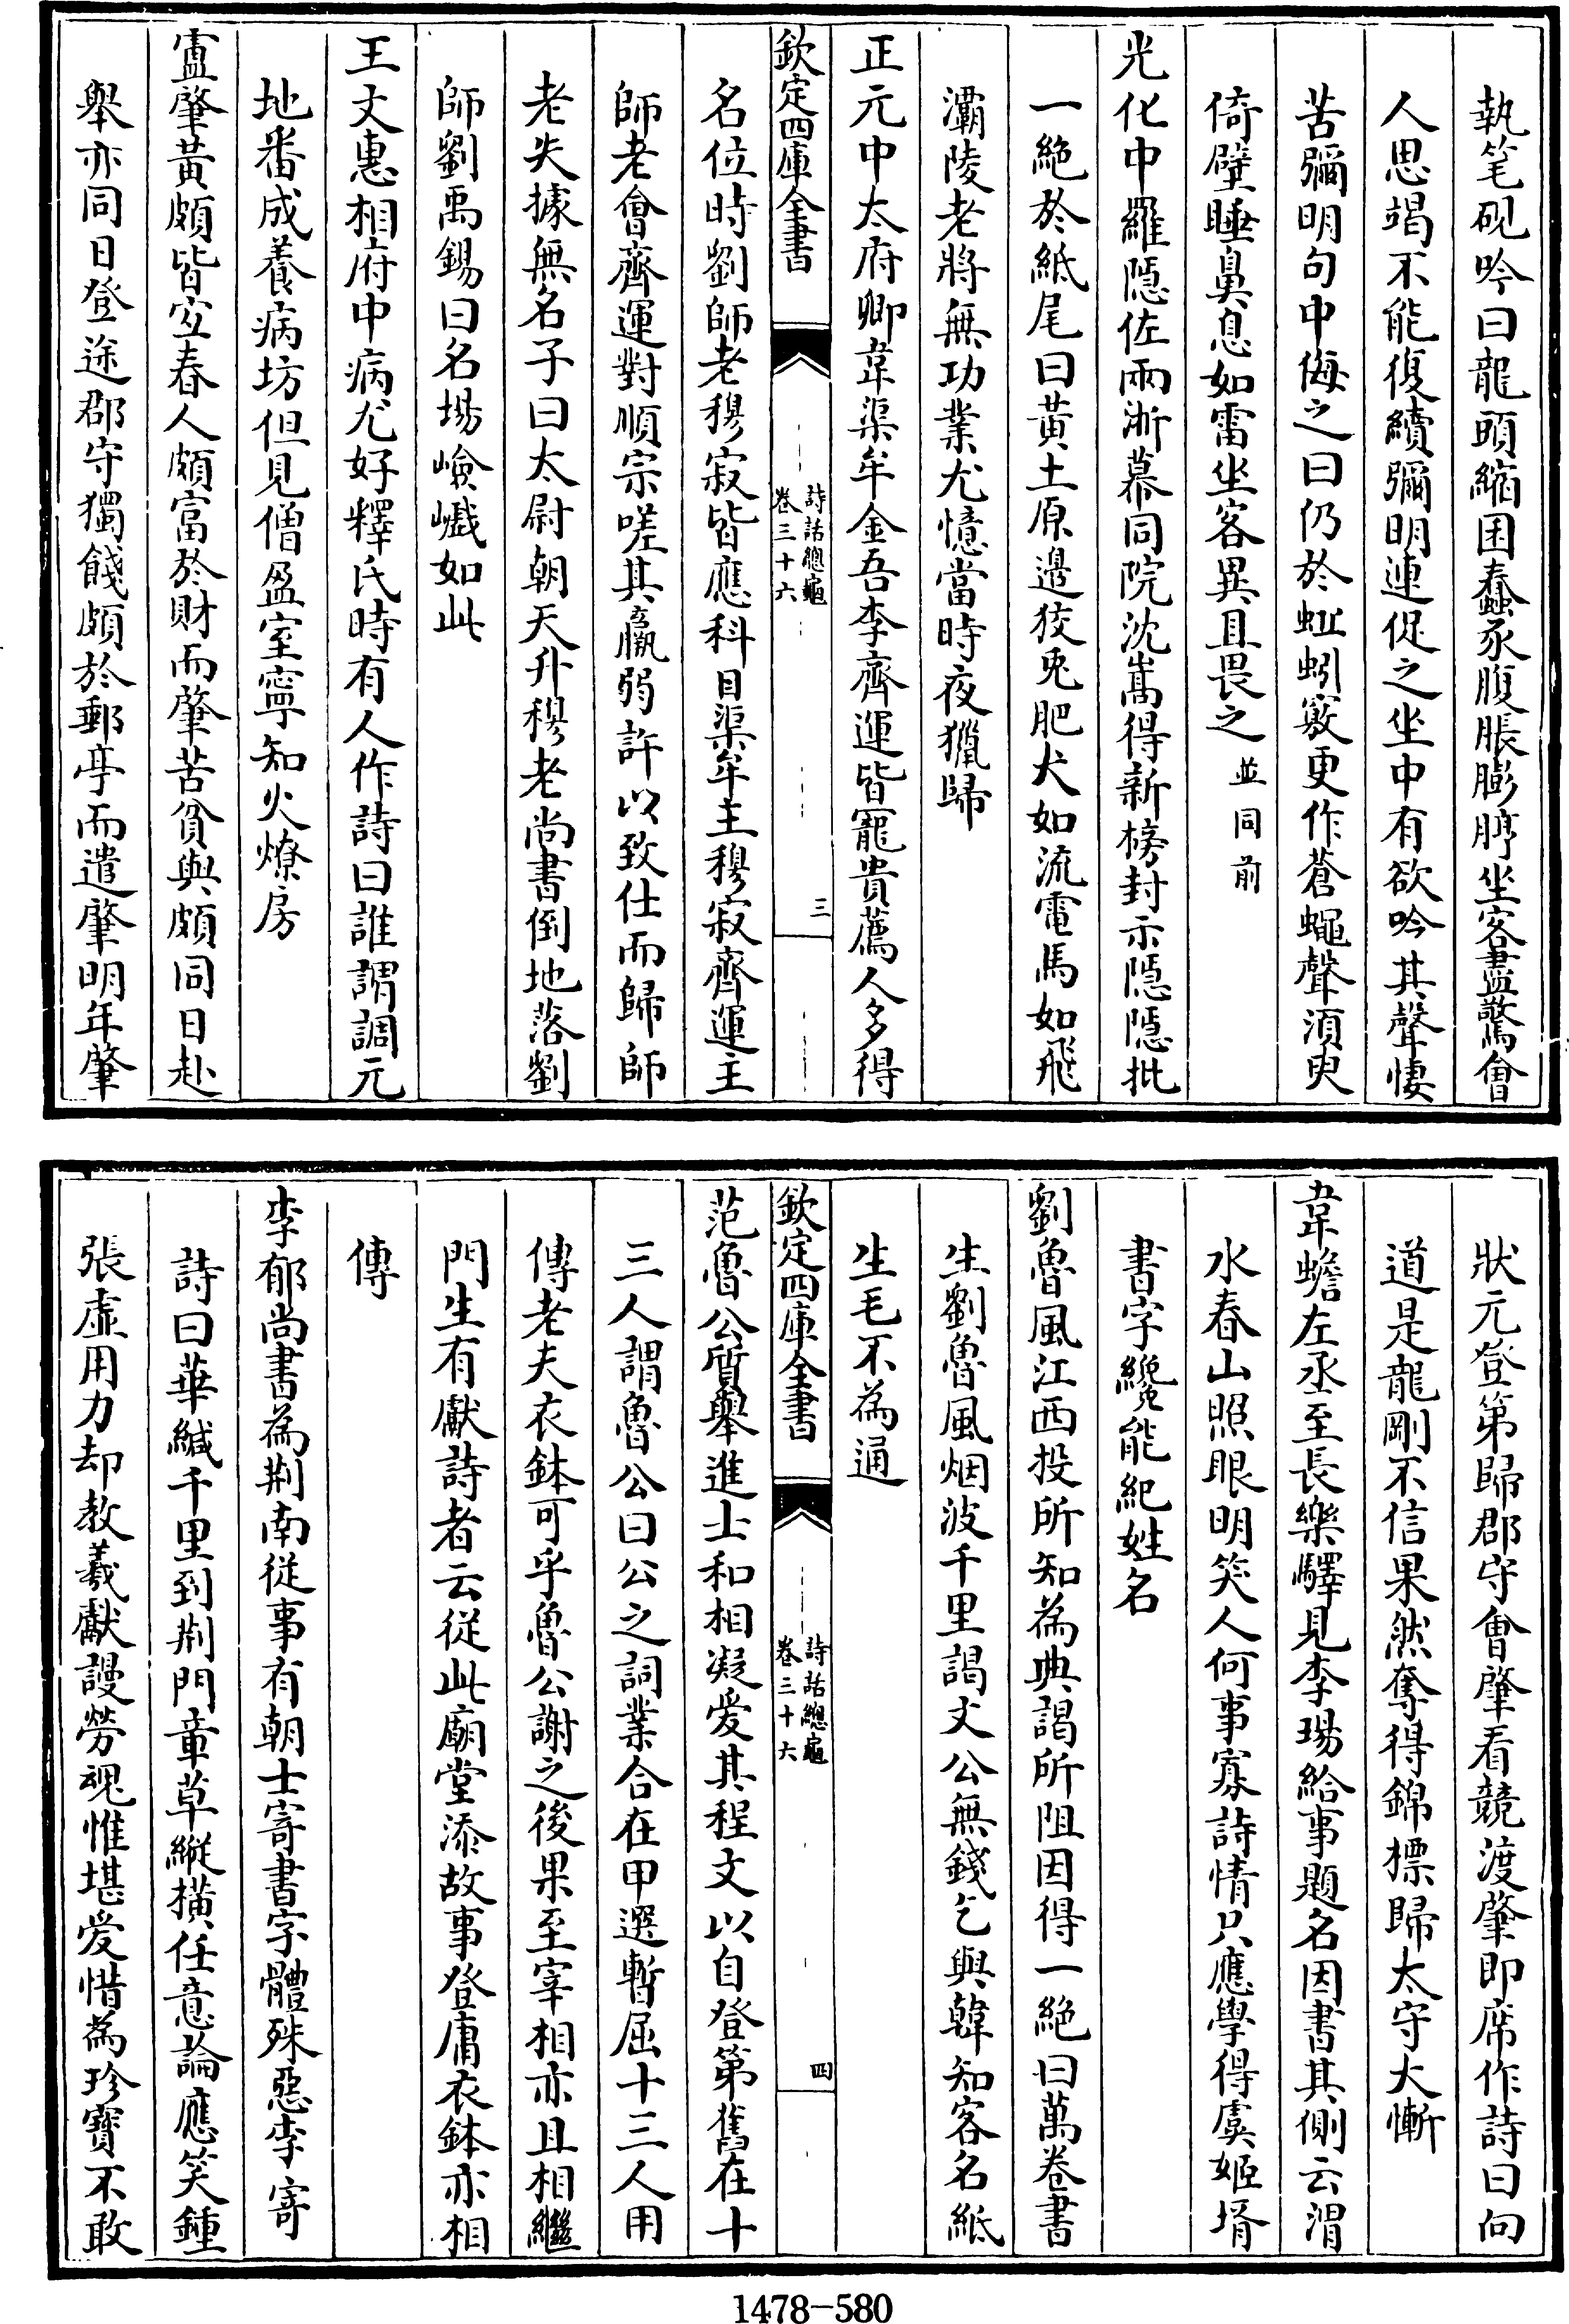 執笔硯吟曰龍頭縮困蠢豕腹脹膨脝坐客盡驚會
人思竭不能復續彌明連促之坐中有欲吟其聲悽
苦彌明句中侮之曰仍於蚯蚓竅更作蒼蠅聲湏臾
倚壁睡鼻息如雷坐客異且畏之並同前
光化中羅隱佐兩浙幕同院沈嵩得新榜封示隱隱批
一絶於紙尾曰黄土原邊狡兎肥犬如流電馬如飛
灞陵老將無功業尤憶當時夜獵歸
正元中太府卿韋渠牟金吾李齊運皆寵貴薦人多得
欽定四庫全書
詩話總龜
卷三十六
三
名位時劉師老穆寂皆應科目渠牟主穆寂齊運主
師老會齊運對順宗嗟其羸弱許以致仕而歸師
老失據無名子曰太尉朝天升穆老尚書倒地落劉
師劉禹錫曰名塲嶮巇如此
王文惠相府中病尤好釋氏時有人作詩曰誰謂調元
地番成養病坊但見僧盈室寧知火燎房
盧肇黄頗皆宜春人頗富於財而肇苦貧與頗同日赴
舉亦同日登途郡守獨餞頗於郵亭而遣肇明年肇
狀元登第歸郡守會肇看競渡肇即席作詩曰向
道是龍剛不信果然奪得錦標歸太守大慚
韋蟾左丞至長樂驛見李瑒給事題名因書其側云渭
水春山照眼明笑人何事寡詩情只應學得虞姬壻
書字纔能紀姓名
劉魯風江西投所知為典謁所阻因得一絶曰萬卷書
生劉魯風烟波千里謁文公無錢乞與韓知客名紙
生毛不為通
欽定四庫全書
詩話總龜
卷三十六
四
范魯公質舉進士和相凝爱其程文以自登第舊在十
三人謂魯公曰公之詞業合在甲選暫屈十三人用
傳老夫衣鉢可乎魯公謝之後果至宰相亦且相繼
門生有獻詩者云從此廟堂添故事登庸衣鉢亦相
傳
李郁尚書為荆南從事有朝士寄書字體殊惡李寄
詩曰華緘千里到荆門章草縱横任意論應笑鍾
張虚用力却教羲獻謾勞魂惟堪爱惜為珍寳不敢
1478-580